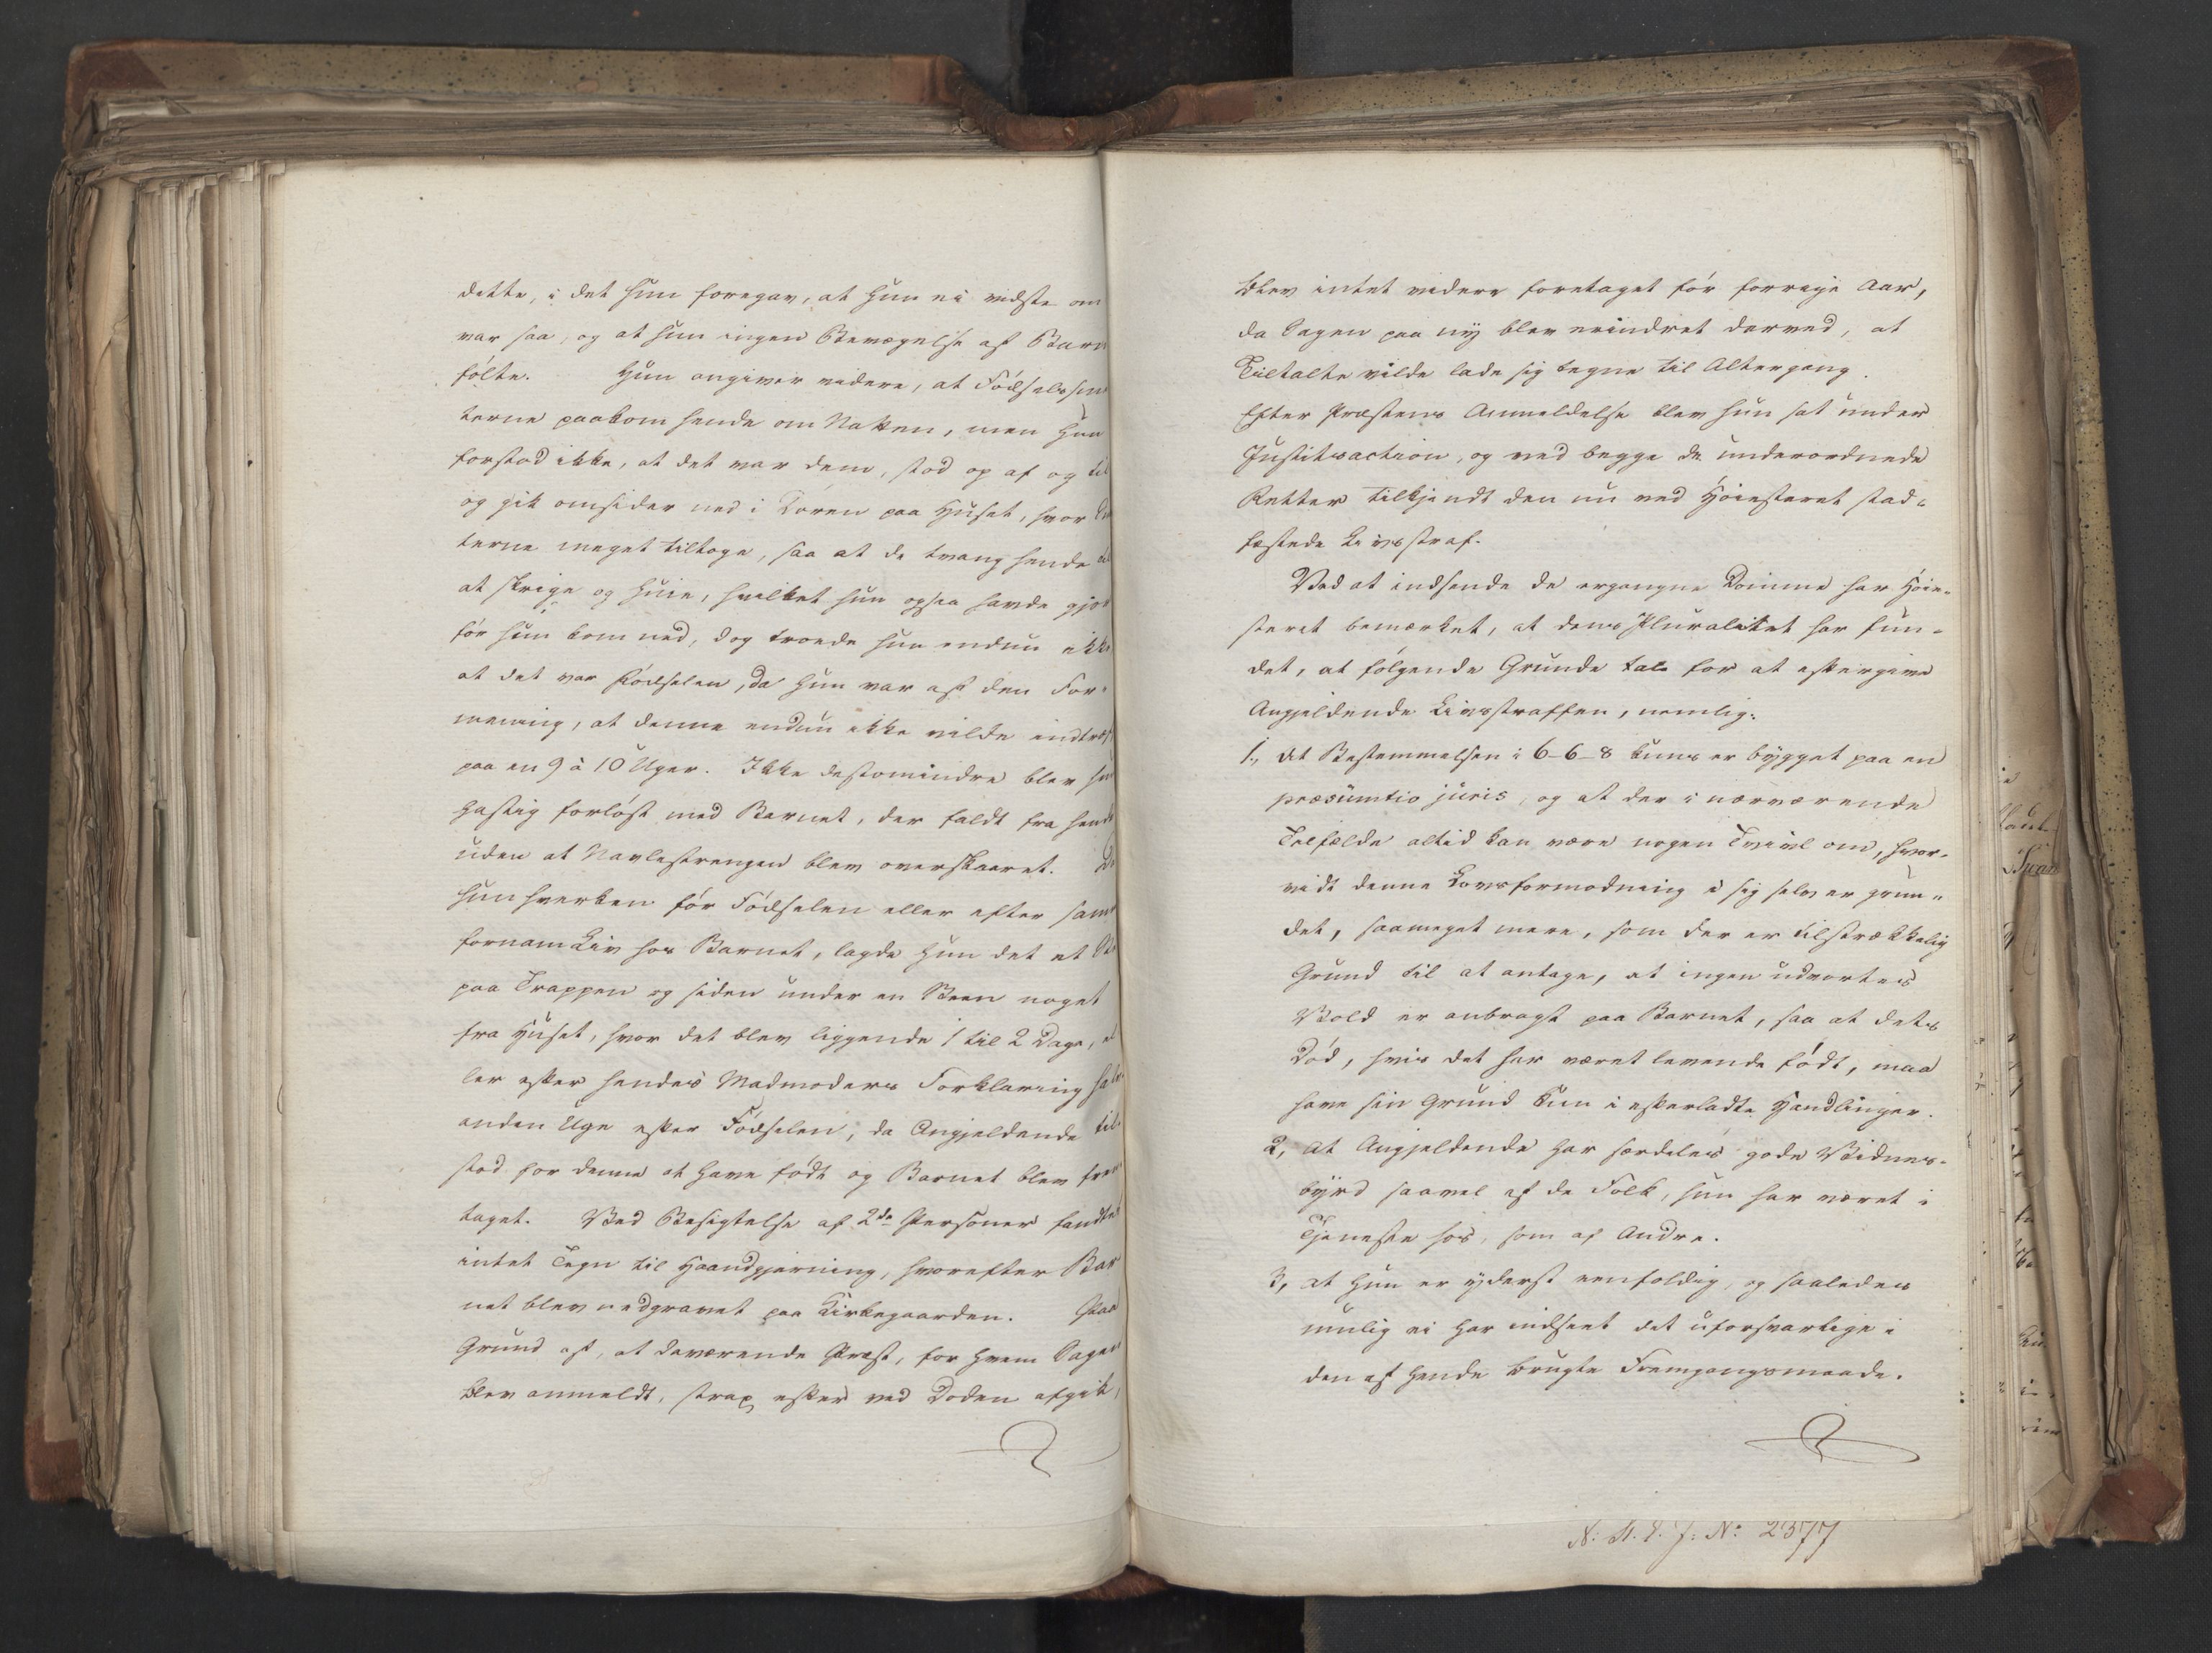 dette, i det hun foregav, at hun ei vidste om
var saa, og at hun ingen Bevægelse af Barn
følte. Hun angiver videre, at Fødselssm
terne paakom hende om Natten, men hun
forstod ikke, at det var dem, stod op af og til
og gik omsider ned i Døren paa Huset, hvor
terne meget tiltoge, saa at de tvang hende
at skrige og huie, hvilket hun ogsaa havde gjor
før hun kom ned, dog troede hun endnu ikke
at det var Fødselen, da hun var af den For-
mening, at denne endnu ikke vilde indtræf
paa en 9 à 10 Uger. Ikke destomindre blev hun
hastig forløst med Barnet, der faldt fra hende
uden at Navlestrengen blev overskaaret. Da
hun hverken før Fødselen eller efter samme
fornam Liv hos Barnet, lagde hun det et
paa Trappen og siden under en Steen noget
fra Huset, hvor det blev liggende 1 til 2 Dage, el
ler efter hendes Madmoders Forklaring halv
anden Uge efter Fødselen, da Angjeldende til-
stod for denne at have født og Barnet blev frem
taget. Ved Besigtelse af 2de Personer fandtes
intet Tegn til Haandgjerning, hvorefter Bar
net blev nedgravet paa Kirkegaarden. Paa
Grund af, at daværende Præst, for hvem Sagen
blev anmeldt, strax efter ved Døden afgik,
blev intet videre foretaget før forrige Aar,
da Sagen paa ny blev erindret derved, at
Tiltalte vilde lade sig tegne til Altergang.
Efter Præstens Anmeldelse blev hun sat under
Justitsaction, og ved begge de underordnede
Retter tilkjendt den nu ved Høiesteret stad-
fæstede Livsstraf.
Ved at indsende de ergangne Domme har Høie-
steret bemærket, at dens Pluralitet har fun-
det, at følgende Grunde tale for at eftergive
Angjeldende Livsstraffen, nemlig:
1., At Bestemmelsen i 6-6-8 kuns er bygget paa en
præsumtio juris, og at der i nærværende
Tilfælde altid kan være nogen Tvivl om, hvor-
vidt denne Lovsformodning i sig selv er grun-
det, saameget mere, som der er tilstrækkelig
Grund til at antage, at ingen udvortes
Vold er anbragt paa Barnet, saa at dets
Død, hvis det har været levende født, maa
have sin Grund kun i efterladte Handlinger.
2, at Angjeldende har særdeles gode Vidnes-
byrd saavel af de Folk, hun har været i
Tjeneste hos, som af Andre.
3, at hun er yderst eenfoldig, og saaledes
mulig ei har indseet det uforsvarlige i
den af hende brugte Fremgangsmaade.
N: St. L. J: No 2377